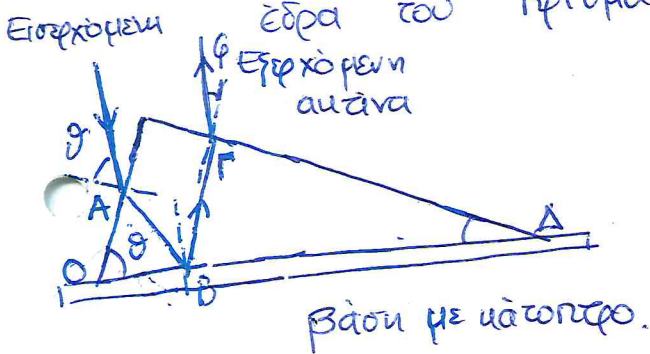 Εισερχόμενη
έδρα του πρισμα
Εξερχόμενη
ακτίνα
φ
θ
A
Γ
i i
θ
O
B
Δ
βάση με κάτοπτρο.